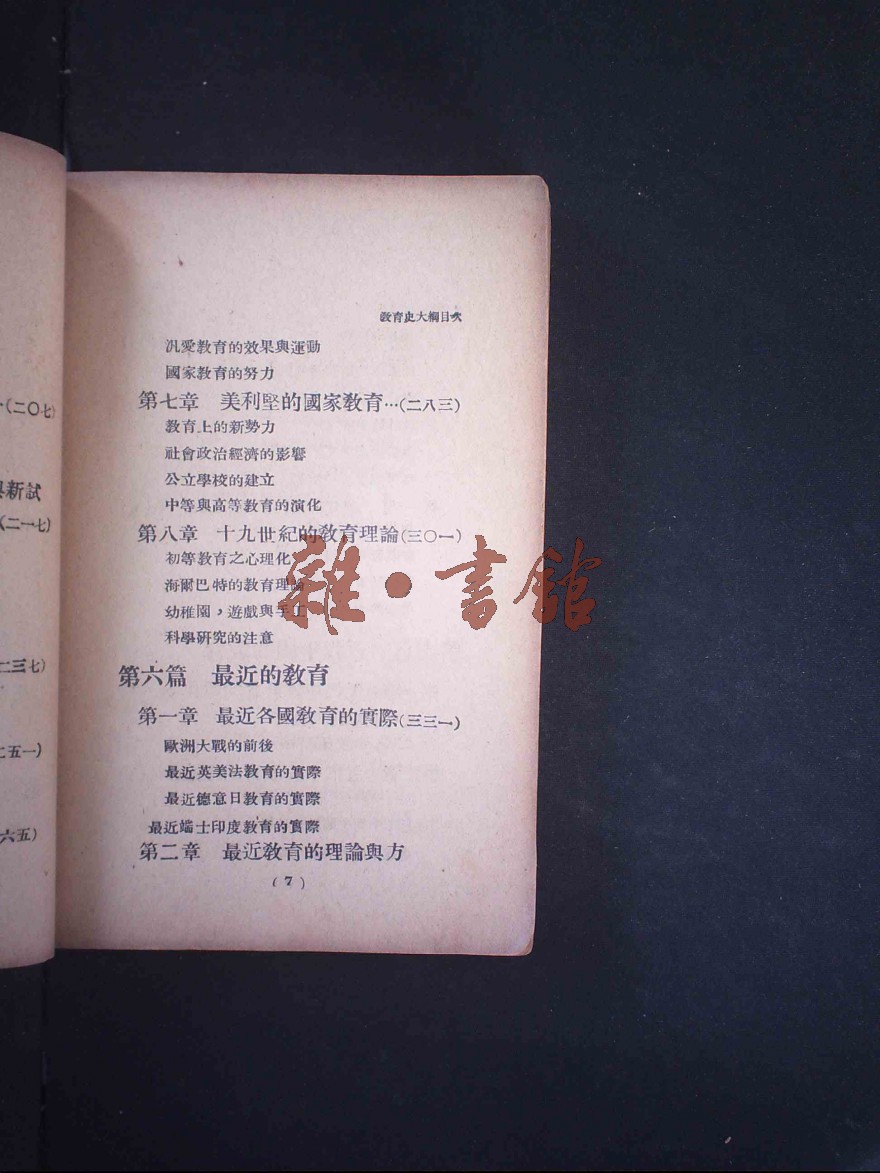 (二〇七)
新試
(二一七)
二三七)
五一)
六五)
教育史大綱目次
汎愛教育的效果與運動
國家教育的努力
第七章 美利堅的國家教育…(二八三)
教育上的新勢力
社會政治經濟的影響
公立學校的建立
中等與高等教育的演化
第八章 十九世紀的教育理論(三〇一)
初等教育之心理化
海爾巴特的教育理論
幼稚園，遊戲與手工
科學研究的注意
第六篇 最近的教育
第一章 最近各國教育的實際(三三一)
歐洲大戰的前後
最近英美法教育的實際
最近德意日教育的實際
最近端士印度教育的實際
第二章 最近教育的理論與方
(7)
雜·書館